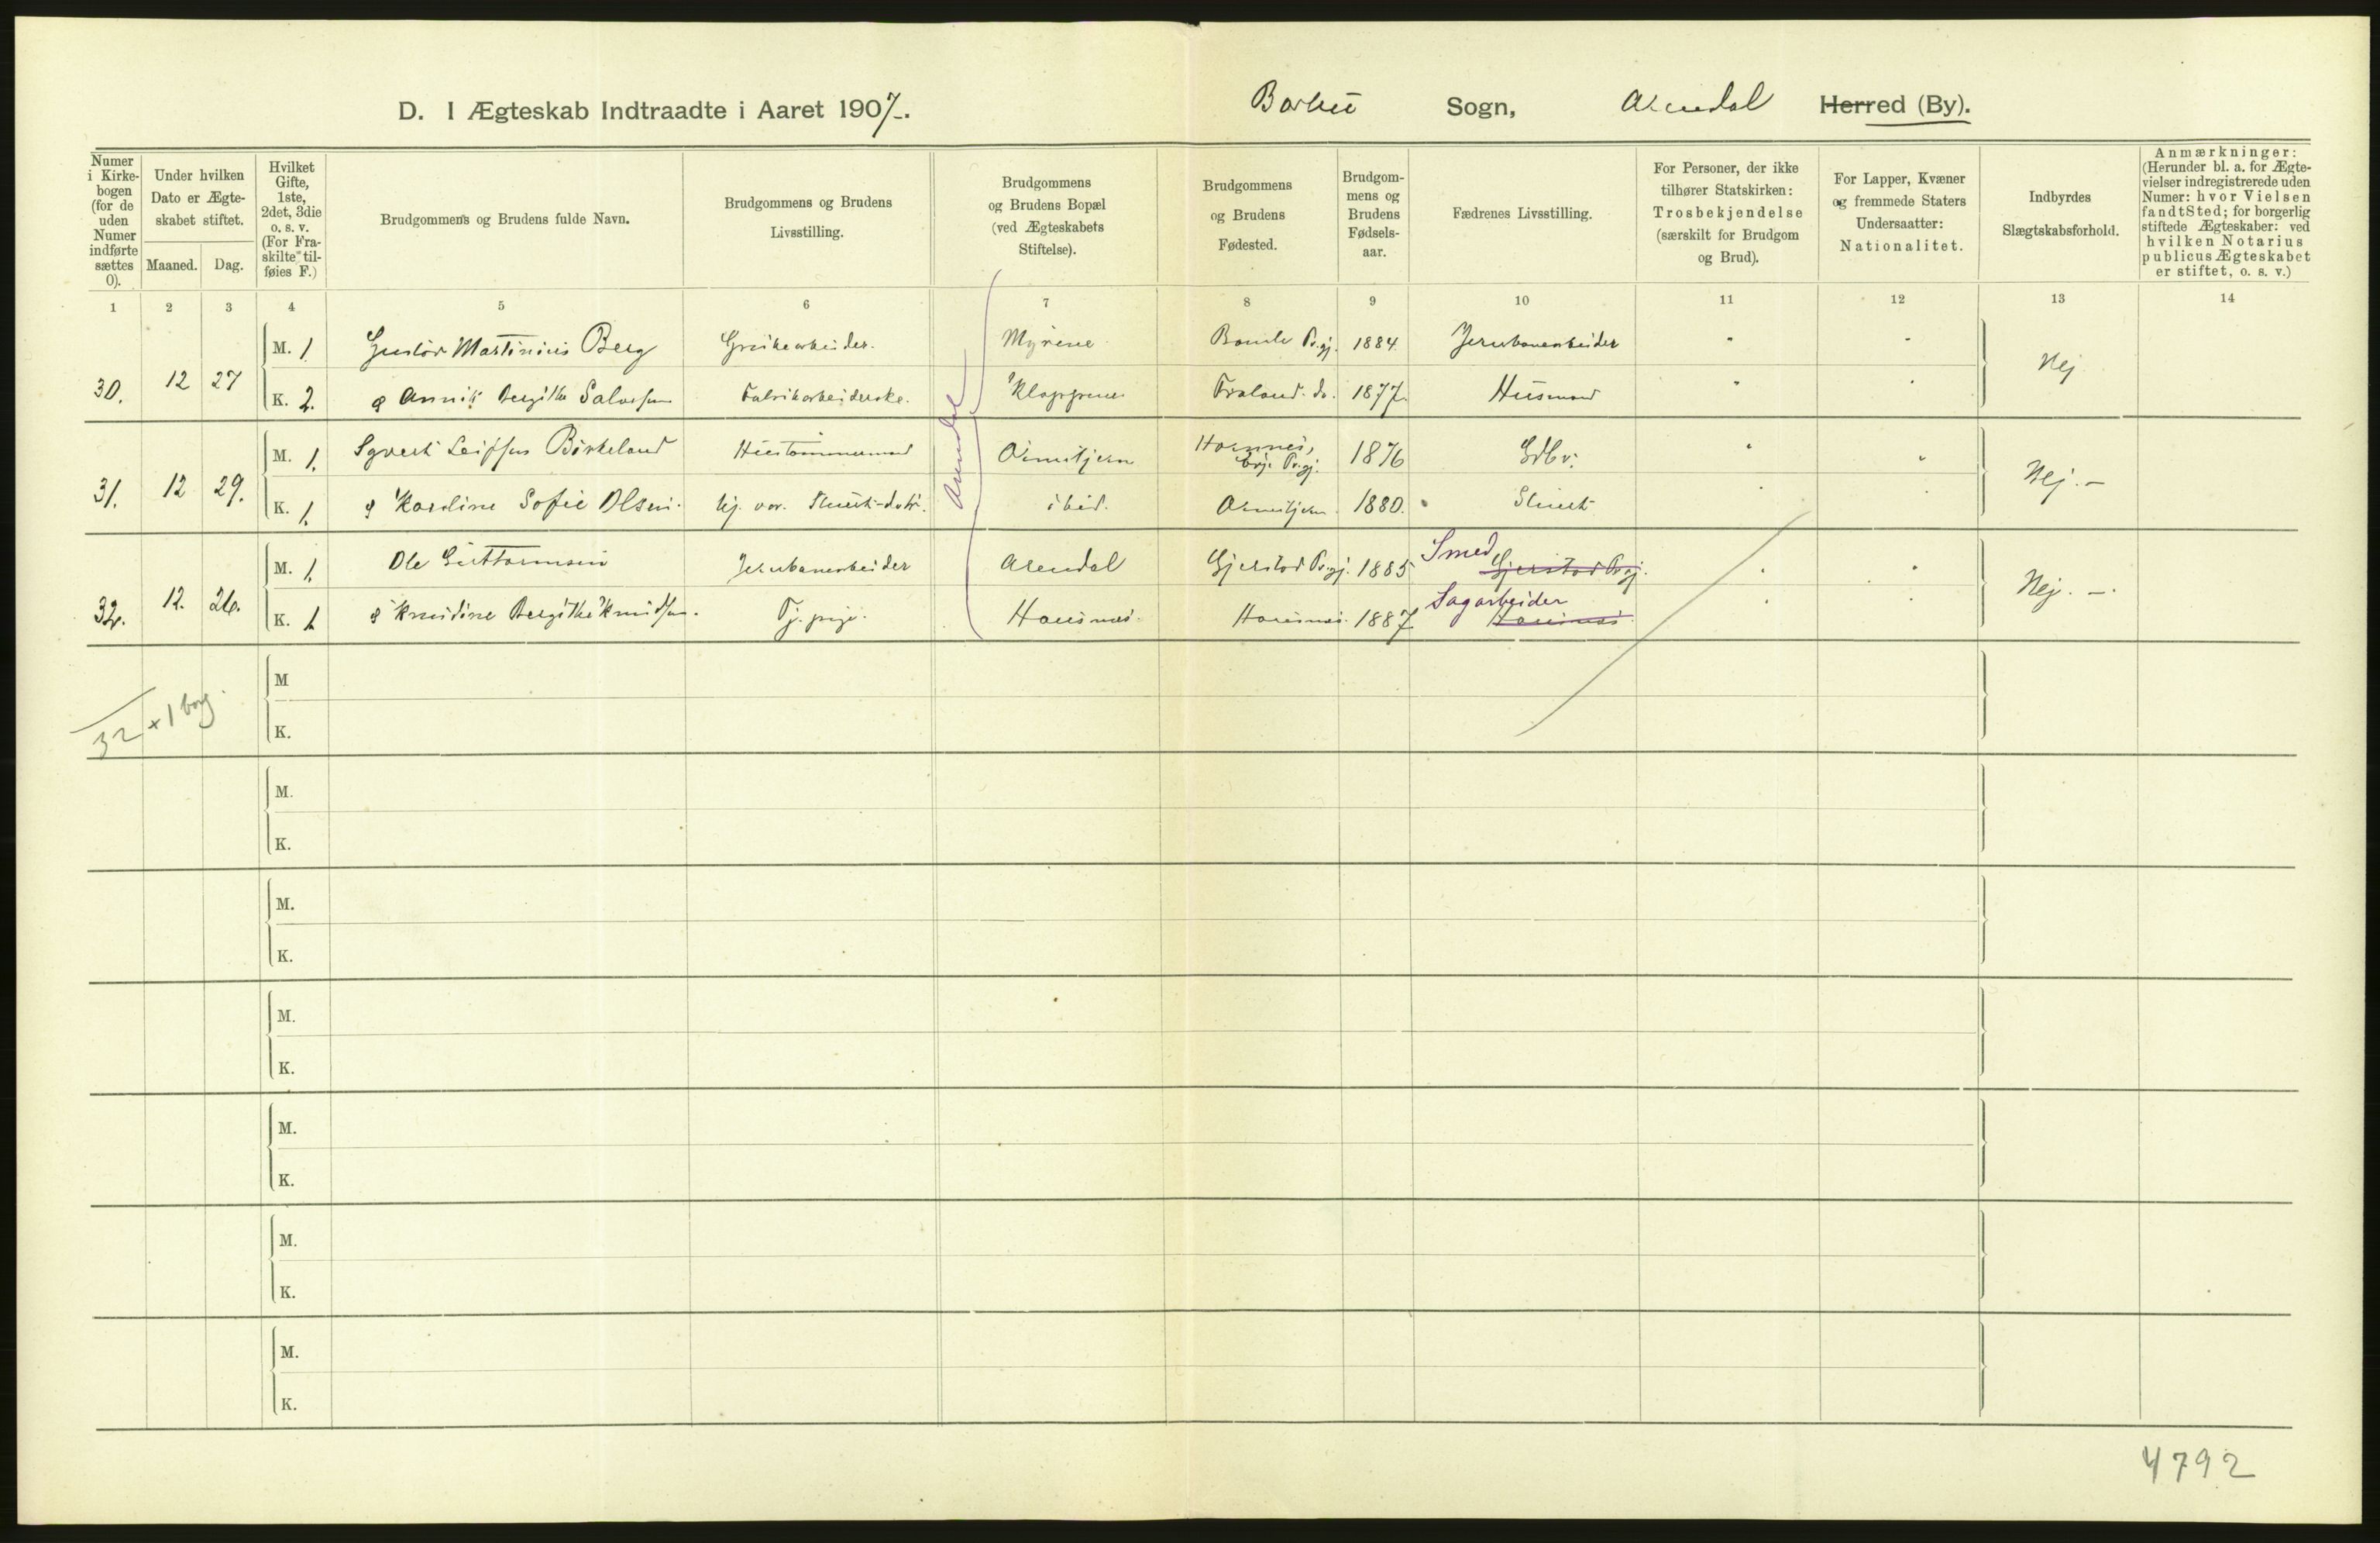 D. I Ægteskab Indtraadte i Aaret 1907.
Barbu Sogn, Arendal Herred (By).
Numer i Kirkebogen (for de uden Numer indførte sættes 0).
Under hvilken Dato er Ægteskabet stiftet.
Maaned. Dag.
Hvilket Gifte, 1ste, 2det, 3die o. s. v. (For Fraskilte tilføies F.)
Brudgommens og Brudens fulde Navn.
Brudgommens og Brudens Livsstilling.
Brudgommens og Brudens Bopæl (ved Ægteskabets Stiftelse).
Brudgommens og Brudens Fødested.
Brudgommens og Brudens Fødselsaar.
Fædrenes Livsstilling.
For Personer, der ikke tilhører Statskirken: Trosbekjendelse (særskilt for Brudgom og Brud).
For Lapper, Kvæner og fremmede Staters Undersaatter: Nationalitet.
Indbyrdes Slægtskabsforhold.
Anmærkninger: (Herunder bl. a. for Ægtevielser indregistrerede uden Numer: hvor Vielsen fandt Sted; for borgerlig stiftede Ægteskaber: ved hvilken Notarius publicus Ægteskabet er stiftet, o. s. v.)
1 2 3 4 5 6 7 8 9 10 11 12 13 14
30. 12 27
M. 1. Gustav Martinius Berg Grubearbeider. Myrene Bamle Prgj. 1884. Jernbanearbeider " "
K. 2. & Annik Bergithe Salvesen Fabrikarbeiderske. Klappene Froland do. 1877. Husmand " "
Nej
Arendal
31. 12 29.
M. 1. Sgvert Leifsen Birkeland Hustømmermand Ornutjern Hornnes, Evje Prgj. 1876 Gdbr. " "
K. 1. & Karoline Sofie Olsen. hj. vær. ibid. 1880. " "
Nej. -
32. 12. 26.
M. 1. Ole Guttormsen Jernbanearbeider Arendal Gjerstad Prgj. 1885 Smed Gjerstad Prgj. " "
K. 1 & Knudine Bergithe Knudsen. Tj. pige. Hausnes. Hausnes. 1887 Sagarbeider Hausnes " "
Nej. -.
32 + 1 borg.
M
K.
M.
K.
M.
K.
M.
K.
M.
K.
M.
K.
M.
K.
4792